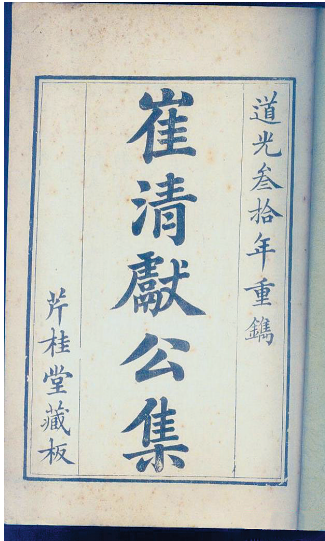 道光叄拾年重鐫
崔清獻公集
芹桂堂藏板